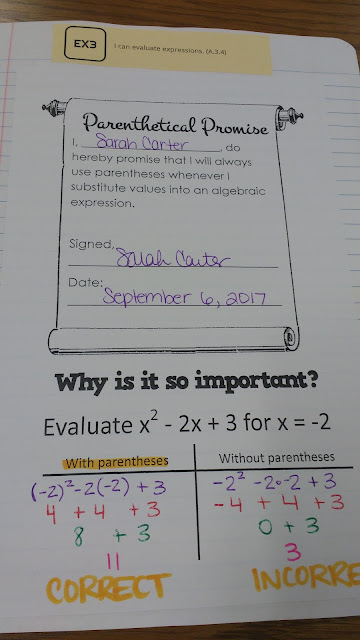 EX3
I can evaluate expressions. (A.3.4)
Parenthetical Promise
I, Sarah Carter, do
hereby promise that I will always
use parentheses whenever I
substitute values into an algebraic
expression.
Signed, Sarah Carter
Date: September 6, 2017
Why is it so important?
Evaluate x² - 2x + 3 for x = -2
With parentheses
(-2)²-2(-2) + 3
4 + 4 + 3
8 + 3
11
CORRECT
Without parentheses
-2² -2•-2 + 3
-4 + 4 + 3
0 + 3
3
INCORRE